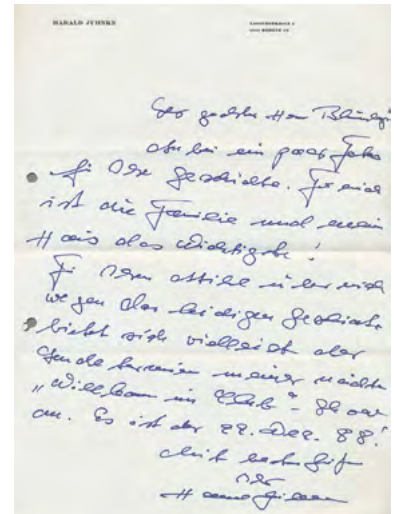 HARALD JUHNKE
1000 BERLIN
Sehr geehrter Herr
anbei ein paar Fotos
für Ihre Geschichte. Für mich
ist die Familie und mein
Haus das Wichtigste!
Für Ihren Artikel über mich
wegen der leidigen Geschichte
bietet sich vielleicht der
Sendetermin meiner nächsten
„Willkommen im Club"-Show
an. Es ist der 29. Dez. 88!
Mit besten Grüßen
Ihr